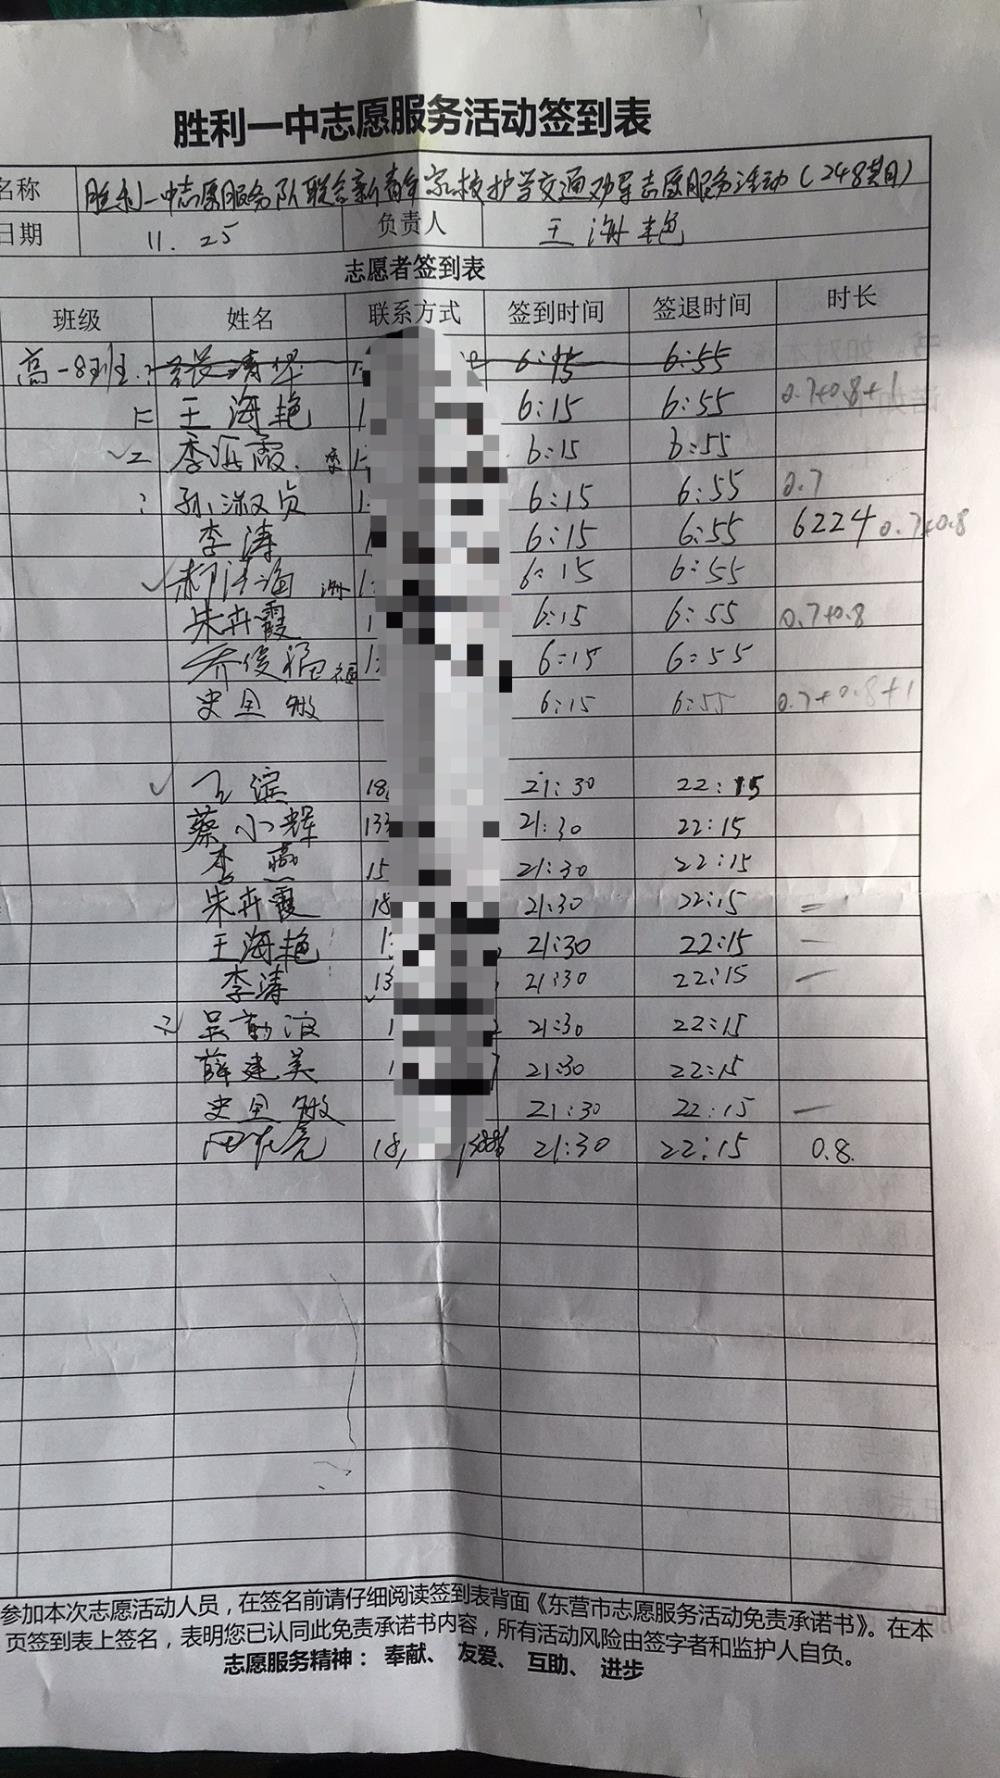 胜利一中志愿服务活动签到表
名称 胜利一中志愿服务队联合新青年家校护学交通劝导志愿服务活动(248期)
日期 11.25 负责人 王海艳
志愿者签到表
班级 姓名 联系方式 签到时间 签退时间 时长
高一8班 6:15 6:55
王海艳 6:15 6:55 0.7+0.8+1
李海霞 6:15 6:55
孙淑贞 6:15 6:55 0.7
李涛 6:15 6:55 6224 0.7+0.8
6:15 6:55
朱卉霞 6:15 6:55 0.7+0.8
乔俊福 福 6:15 6:55
史全敏 6:15 6:55 0.7+0.8+1
18 21:30 22:15
蔡小辉 133 21:30 22:15
李燕 15 21:30 22:15
朱卉霞 18 21:30 22:15
王海艳 21:30 22:15
李涛 13 21:30 22:15
21:30 22:15
薛建美 21:30 22:15
史全敏 21:30 22:15
18 21:30 22:15 0.8.
参加本次志愿活动人员，在签名前请仔细阅读签到表背面《东营市志愿服务活动免责承诺书》。在本
页签到表上签名，表明您已认同此免责承诺书内容，所有活动风险由签字者和监护人自负。
志愿服务精神： 奉献、 友爱、 互助、 进步